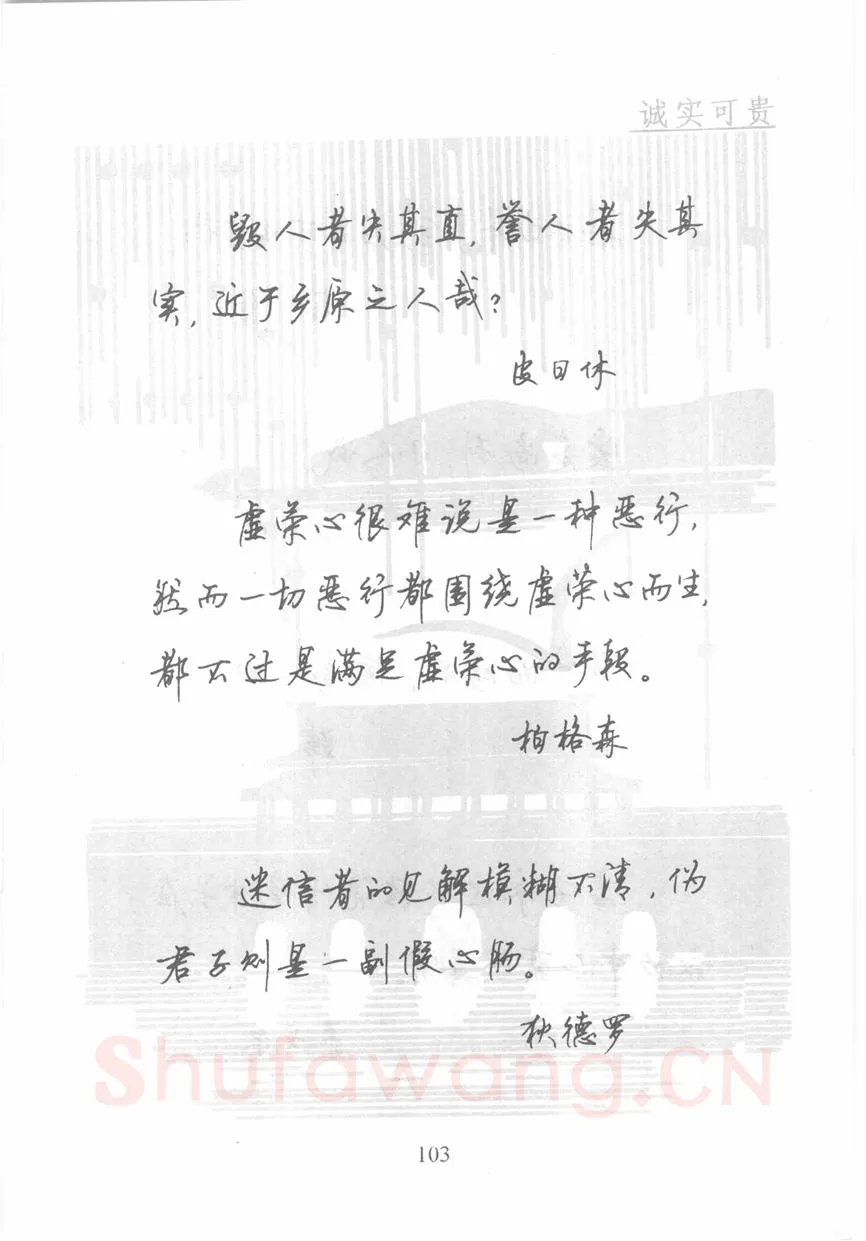 诚实可贵
毁人者失其直，誉人者失其
实，近于乡原之人哉？
皮日休
虚荣心很难说是一种恶行，
然而一切恶行都围绕虚荣心而生，
都不过是满足虚荣心的手段。
柏格森
迷信者的见解模糊不清，伪
君子则是一副假心肠。
狄德罗
Shufawang.CN
103